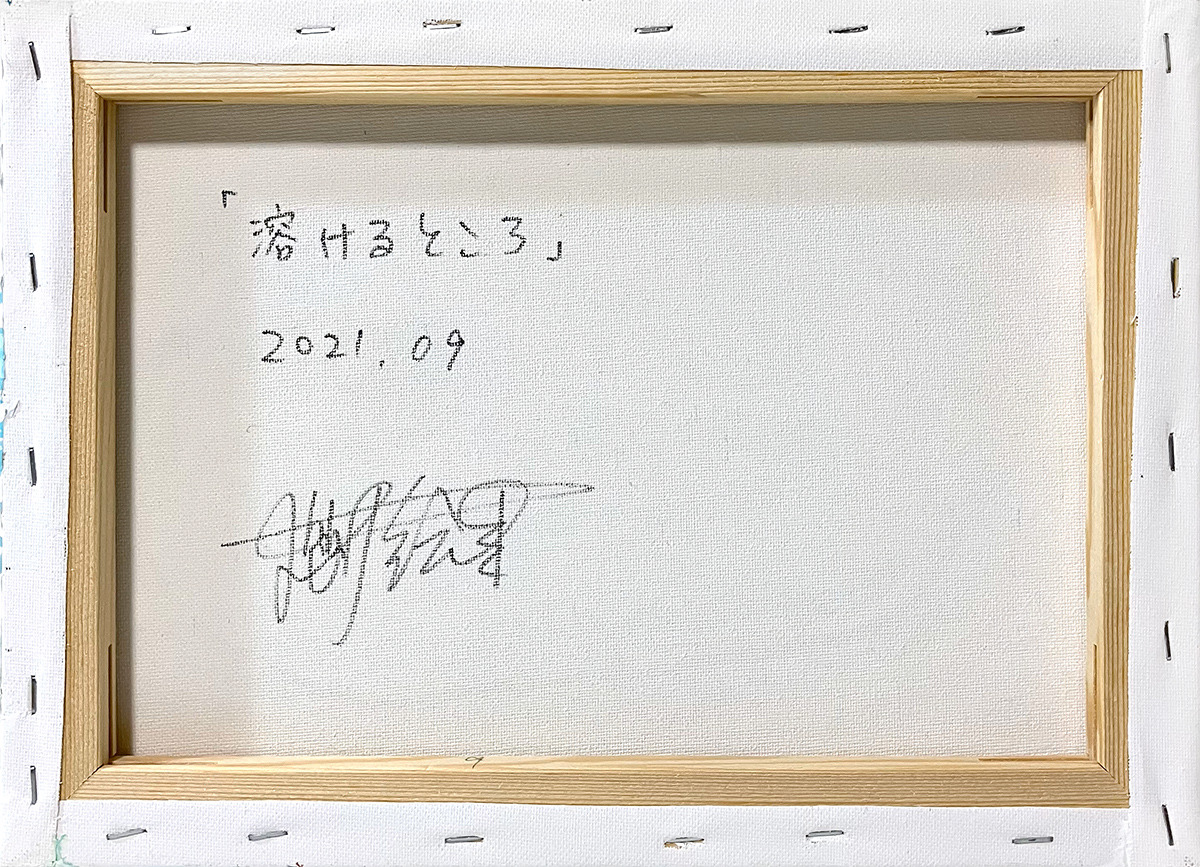 「溶けるところ」
2021.09